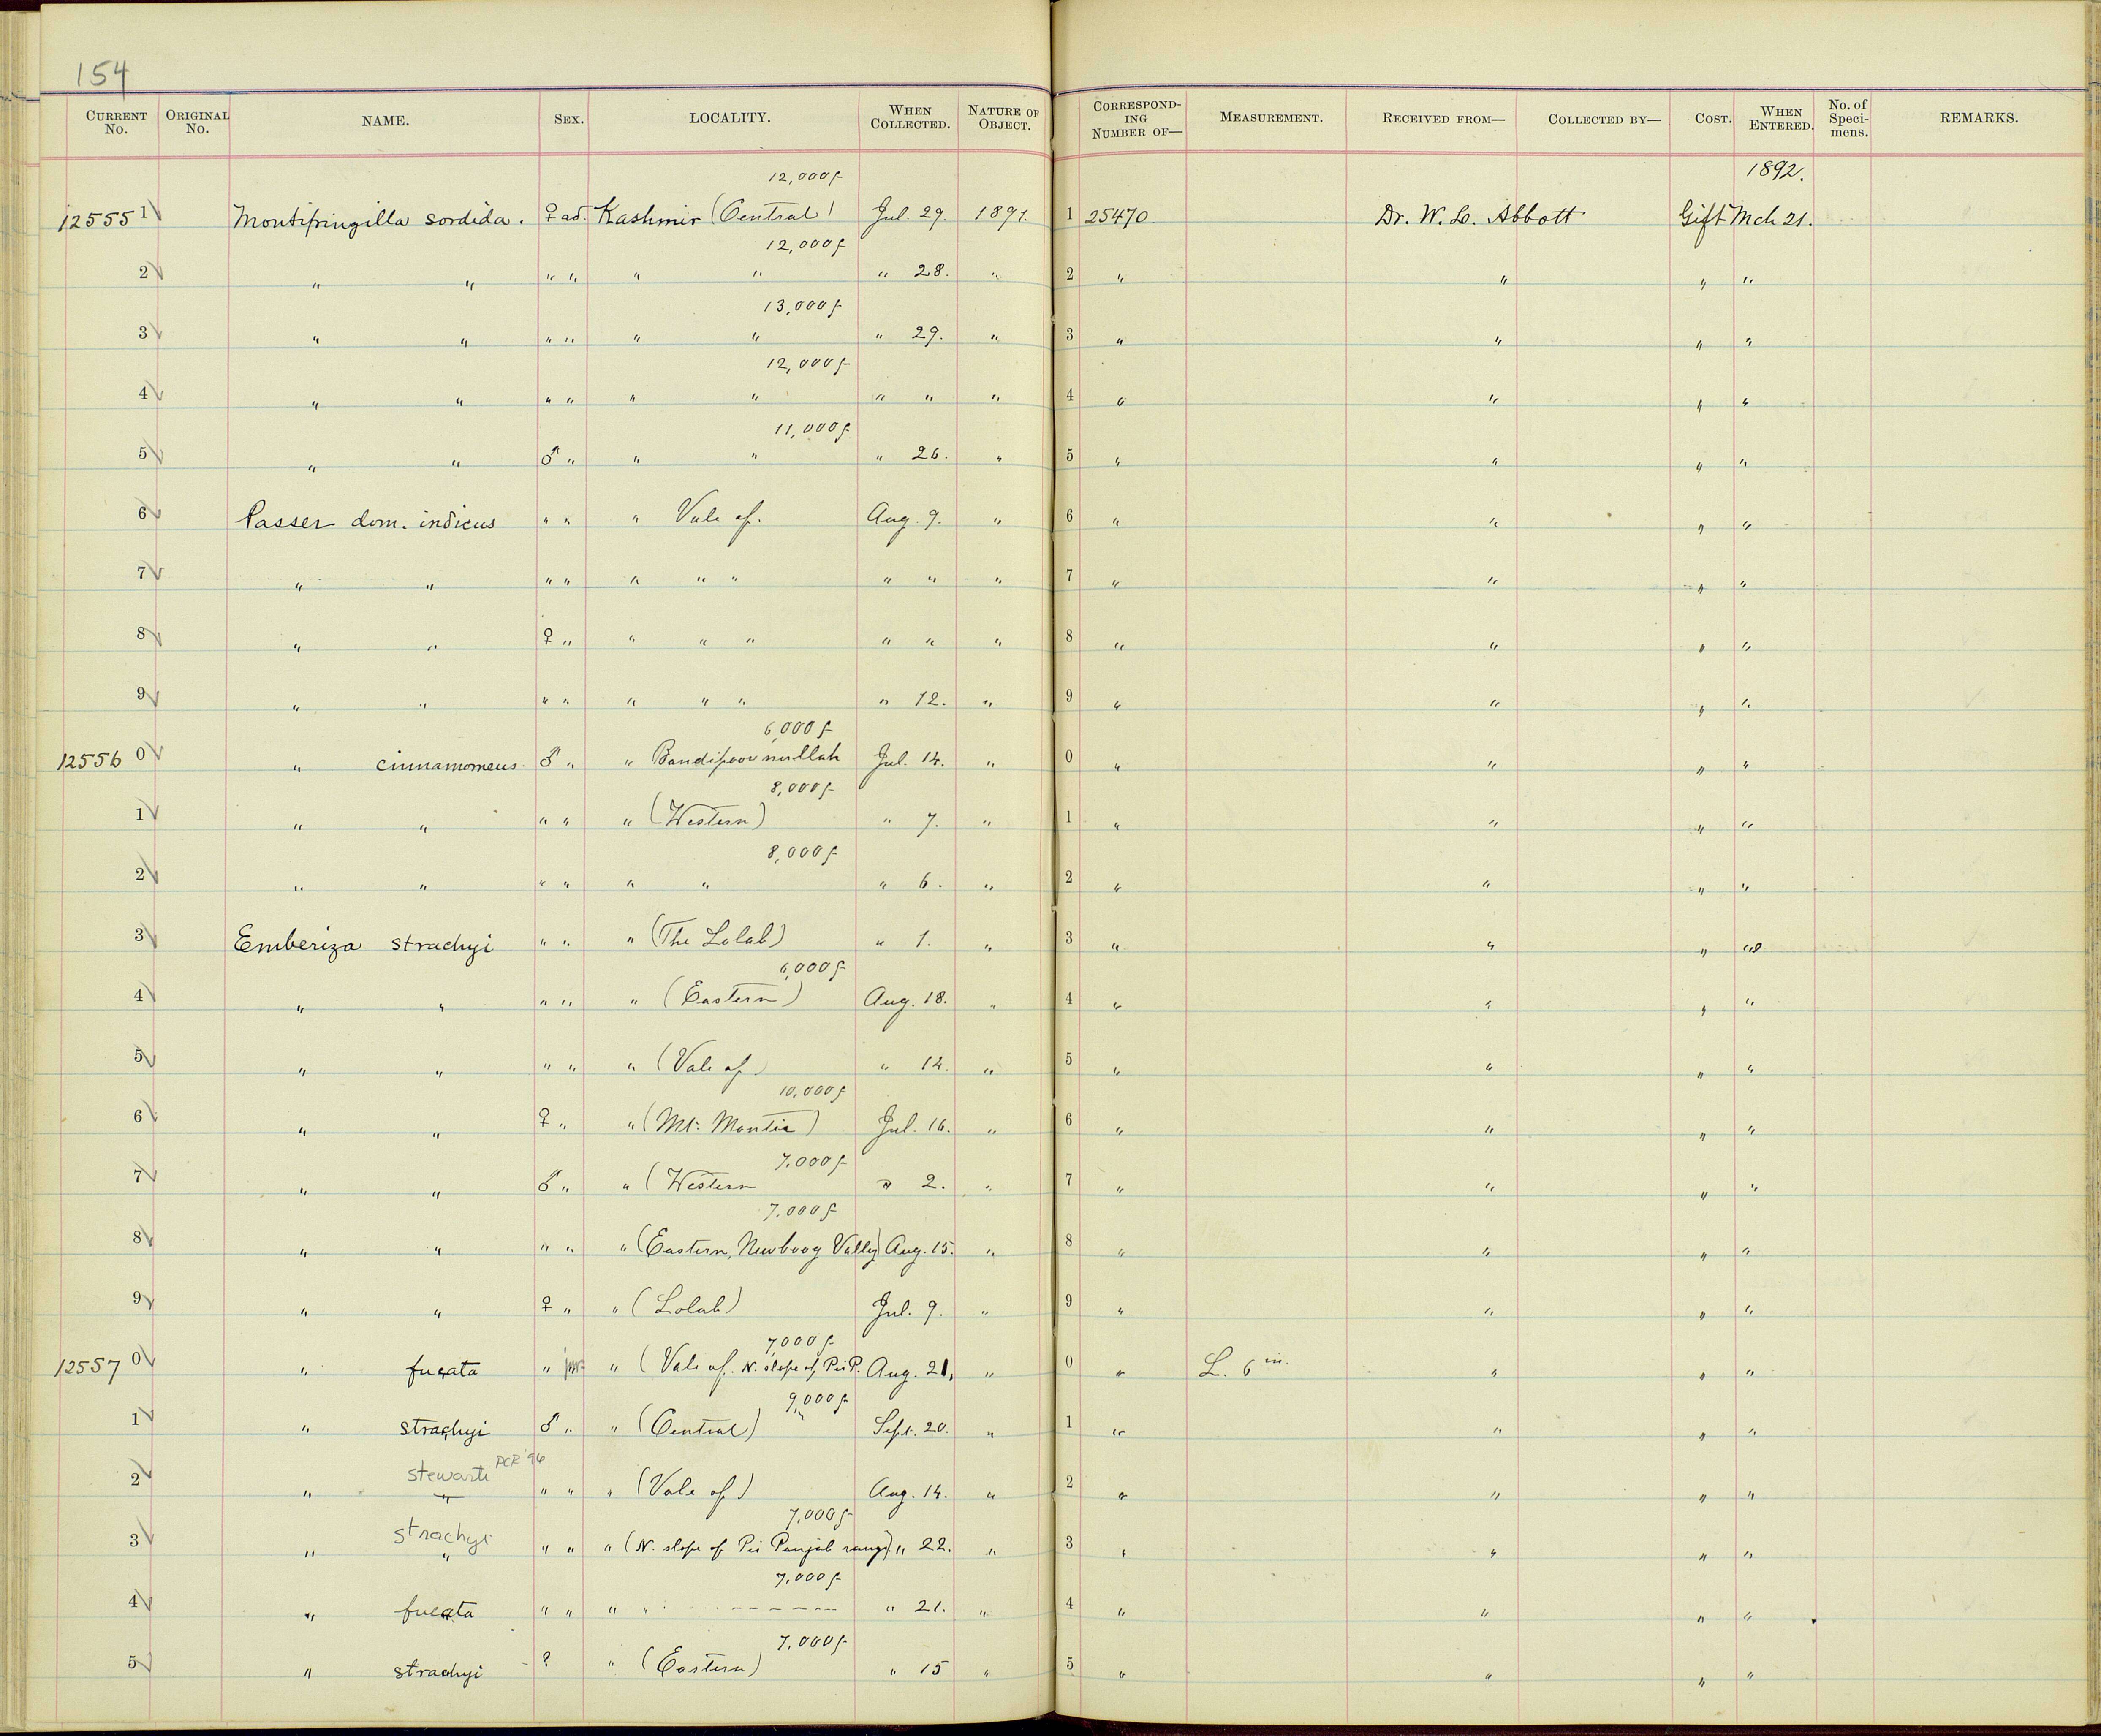 154
CURRENT No. ORIGINAL No. NAME. SEX. LOCALITY. WHEN COLLECTED. NATURE OF OBJECT. CORRESPONDING NUMBER OF— MEASUREMENT. RECEIVED FROM— COLLECTED BY— COST. WHEN ENTERED. No. of Specimens. REMARKS.
12,000f 1892.
12555 1 Montifringilla sordida. ♀ ad. Kashmir (Central) Jul. 29. 1891. 1 25470 Dr. W. L. Abbott Gift Mch 21.
12,000f
2 " " " " " " " 28. " 2 " " " "
13,000f
3 " " " " " " " 29. " 3 " " " "
12,000f
4 " " " " " " " " " 4 " " " "
11,000f
5 " " ♂ " " " " 26. " 5 " " " "
6 Passer dom. indicus " " " Vale of. Aug. 9. " 6 " " " "
7 " " " " " " " " " " 7 " " " "
8 " " ♀ " " " " " " " 8 " " " "
9 " " " " " " " " 12. " 9 " " " "
6,000f
12556 0 " cinnamomeus ♂ " " Bandipoor nullah Jul. 14. " 0 " " " "
8,000f
1 " " " " " (Western) " 7. " 1 " " " "
8,000f
2 " " " " " " " 6. " 2 " " " "
3 Emberiza strachyi " " " (The Lolab) " 1. " 3 " " " "
6,000f
4 " " " " " (Eastern) Aug. 18. " 4 " " " "
5 " " " " " (Vale of) " 14. " 5 " " " "
10,000f
6 " " ♀ " " (Mt. Montia) Jul. 16. " 6 " " " "
7,000f
7 " " ♂ " " (Western " 2. " 7 " " " "
7,000f
8 " " " " " (Eastern, Newboog Valley) Aug. 15. " 8 " " " "
9 " " ♀ " " (Lolab) Jul. 9. " 9 " " " "
7,000f
12557 0 " fucata " juv. " (Vale of. N. slope of Pir P. Aug. 21, " 0 " L. 6 in. " " "
9,000f
1 " strachyi ♂ " " (Central) Sept. 20. " 1 " " " "
stewarti PCR '96
2 " " " " " (Vale of) Aug. 14. " 2 " " " "
strachyi 7,000f
3 " " " " " (N. slope of Pir Panjab range) " 22. " 3 " " " "
7,000f
4 " fucata " " " " - - - - - - " 21. " 4 " " " "
7,000f
5 " strachyi - ? " (Eastern) " 15 " 5 " " " "